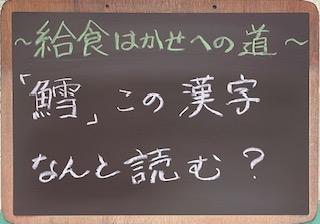 ～給食はかせへの道～
「鱈」この漢字
なんと読む？